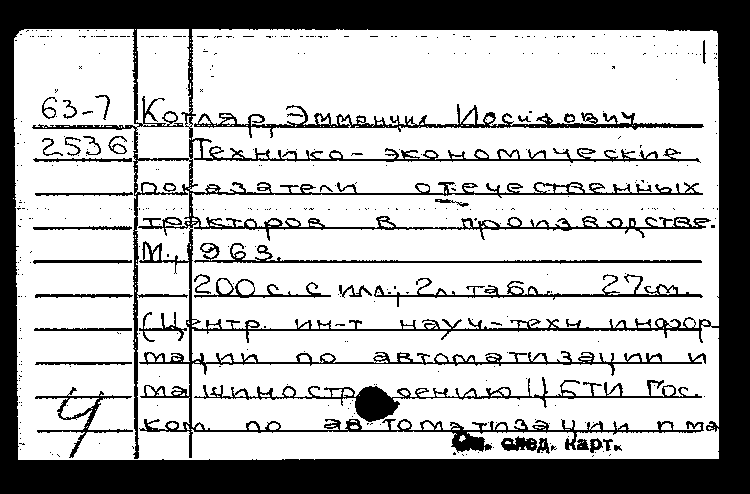 63-7 Котляр, Эммануил Иосифович
2536 Технико-экономические
показатели отечественных
тракторов в производстве.
М., 1963.
200 с. с илл.; 2л. табл. 27см.
(Центр. ин-т науч.-техн. инфор-
мации по автоматизации и
машиностроению ЦБТИ Гос.
ком. по автоматизации и ма
Ч
См. след. карт.